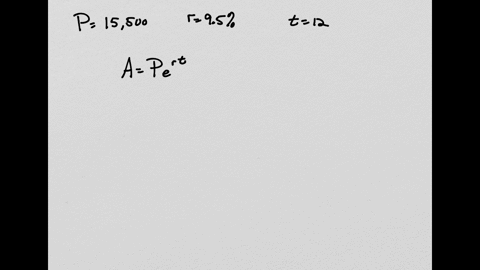 P = 15,500 r = 9.5% t = 12
A = Pe^{rt}